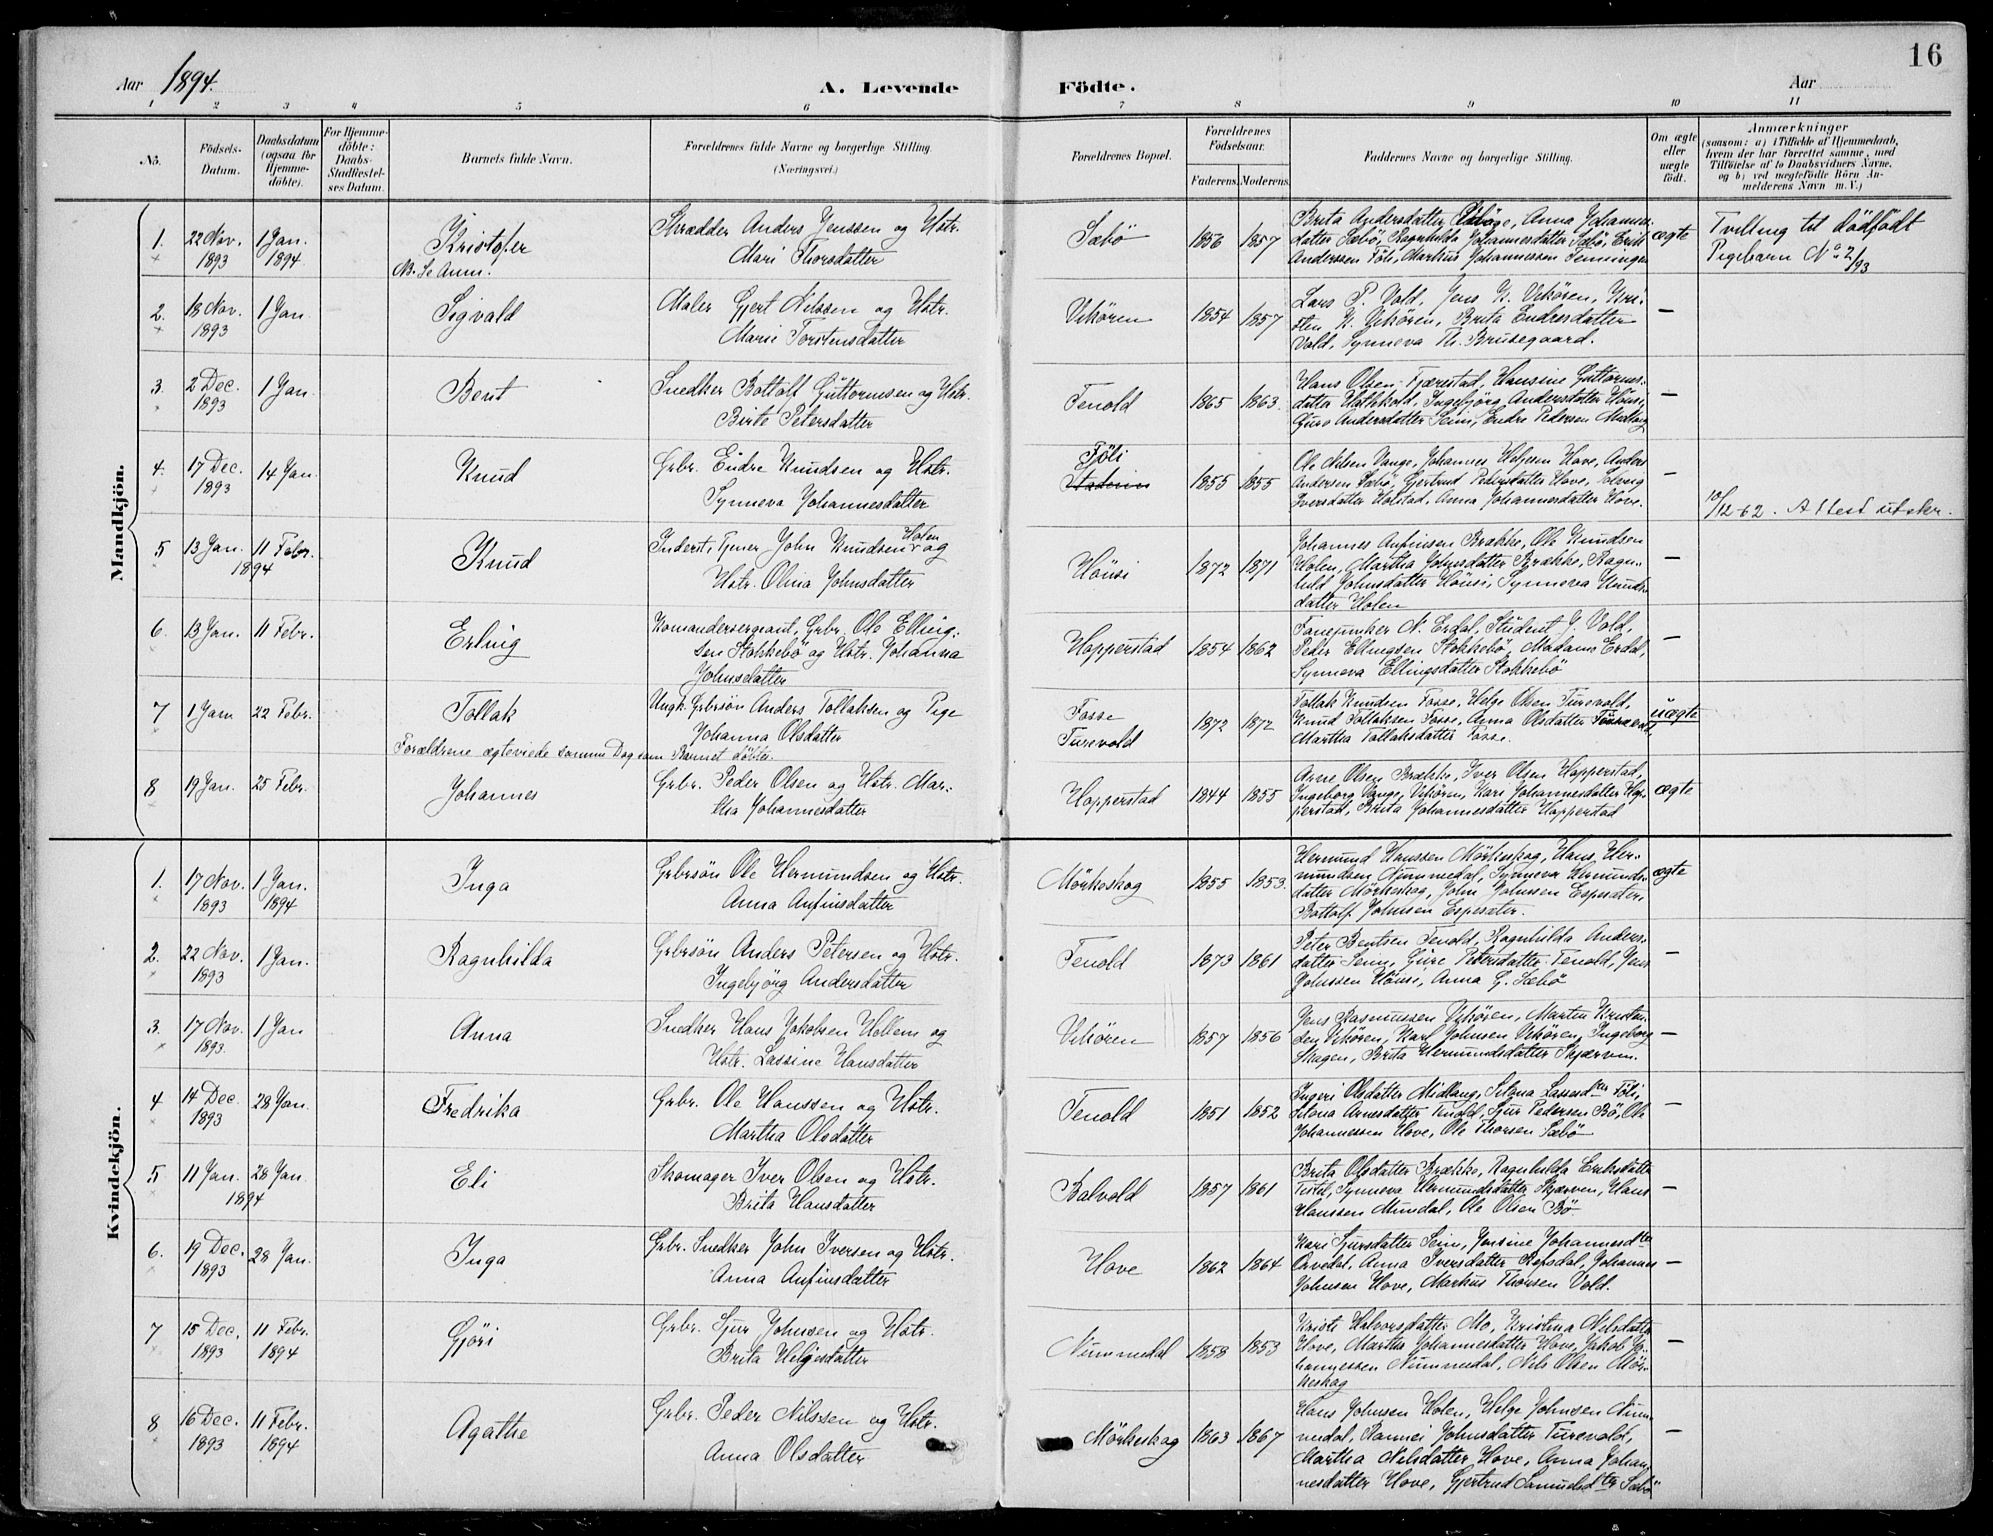 16
Aar 1894.
A. Levende Födte.
Aar
1 2 3 4 5 6 7 8 9 10 11
No.
Födsels-Datum.
Daabsdatum (ogsaa for Hjemme-döbte).
For Hjemme-döbte: Daabs-Stadfæstel-ses Datum.
Barnets fulde Navn.
Forældrenes fulde Navne og borgerlige Stilling. (Næringsvei.)
Forældrenes Bopæl.
Forældrenes Födselsaar.
Faderens. Moderens.
Faddernes Navne og borgerlige Stilling.
Om ægte eller uægte födt.
Anmærkninger
(saasom: a) i Tilfælde af Hjemmedaab, hvem der har forrettet samme, med Tilföielse af to Daabsvidners Navne, og b) ved uægtefödte Börn An-melderens Navn m. V.)
Mandkjön.
1. 22 Nov. 1893 1 Jan. 1894. Kristofer
NB. Se Anm.
Skrædder Anders Jenssen og Hstr.
Mari Thorsdatter
Sæbö 1856 1857
Brita Andersdatter Böge, Anna Johannes-
datter Sæbö, Ragnhilda Johannesdatter Sæbö, Erik
Anderssen Föli, Markus Johannessen
ægte
Tvilling til dödfödt
Pigebarn No 2/93
2. 18 Nov. 1893 1 Jan. Sigvald
Maler Gjert Nilssen og Hstr.
Marie Torstensdatter
Vikören 1854 1857
Lars P. Vold, Jens K. Vikören, Kri-
sten K. Vikören, Brita Endresdatter
Vold, Synneva Th. Brusegaard.
—
3. 2 Dec. 1893 1 Jan. Bent
Snedker Bottolf Guttormsen og Hstr.
Birte Petersdatter
Tenold 1865 1863
Hans Olsen Fjærestad, Hansine Guttorms-
datter, Ingebjörg Andersdatter Hönsi,
Guro Andersdatter Seim, Endre Pedersen
—
4. 17 Dec. 1893 14 Jan. Knud
Grbr. Endre Knudsen og Hstr.
Synneva Johannesdatter
Föli
1855 1855
Ole Nilsen Vange, Johannes Helgesen Hove, Anders
Andersen Sæbö, Gjertrud Pedersdatter Hove, Solveig
Iversdatter Holstad, Anna Johannesdatter Hove.
—
10/12-62. Attest utskr.
5 13 Jan. 11 Febr. 1894 Knud
Inderst, Tjener John Knudsen Holen og
Hstr. Olina Johnsdatter
Hönsi 1872 1871
Johannes Anfinsen Brække, Ole Knudsen
Holen, Martha Johnsdatter Brække, Ragn-
hild Johnsdatter Hönsi, Synneva Knuds-
datter Holen
—
6. 13 Jan. 11 Febr. Erling
Komandersergeant, Grbr. Ole Elling-
sen Stokkebö og Hstr. Johanna
Johnsdatter
Hopperstad 1854 1862
Fanejunker N. Erdal, Student G. Vold,
Peder Ellingsen Stokkebö, Madame Erdal,
Synneva Ellingsdatter Stokkebö
—
7 1 Jan 22 Febr. Tollak
Ungk. Grbrsön Anders Tollaksen og Pige
Johanna Olsdatter
Forældrene ægteviede samme Dag som Barnet döbtes.
Fosse
Turevold
1872 1872
Tollak Knudsen Fosse, Helge Olsen Turevold,
Knud Tollaksen Fosse, Anna Olsdatter Turevold,
Martha Tollaksdatter Fosse.
uægte
8 19 Jan. 25 Febr. Johannes
Grbr. Peder Olsen og Hstr. Mar-
tha Johannesdatter
Hopperstad 1844 1855
Arne Olsen Brække, Iver Olsen Hopperstad,
Ingeborg Vange, Vikören, Kari Johannesdatter Hop-
perstad, Brita Johannesdatter Hopperstad
ægte
Kvindekjön.
1. 17 Nov. 1893 1 Jan. 1894 Inga
Grbrsön Ole Hermundsen og Hstr.
Anna Anfinsdatter
Mörkeskog 1855 1853.
Hermund Hanssen Mörkeskog, Hans Her-
mundsen Nummedal, Synneva Hermunds-
datter Mörkeskog, John Johnsen Espesæter,
Bottolf Johnsen Espesæter.
ægte
2. 22 Nov. 1893 1 Jan. Ragnhilda
Grbrsön Anders Petersen og Hstr.
Ingebjörg Andersdatter
Tenold 1873 1861
Peter Bentsen Tenold, Ragnhilda Anders-
datter Seim, Guro Petersdatter Tenold, Jens
Johnssen Hönsi, Anna G. Sæbö
—
3. 17 Nov. 1893. 1 Jan Anna
Snedker Hans Jakobsen Hollem og
Hstr. Lassine Hansdatter
Vikören 1857 1856
Jens Rasmussen Vikören, Martin Kristen-
den Vikören, Karl Johnsen Vikören, Ingeborg
Skagen, Brita Hermundsdatter Skjærven.
—
4 14 Dec. 1893 28 Jan. Fredrika
Grbr. Ole Hanssen og Hstr.
Martha Olsdatter
Tenold 1851 1852
Ingeri Olsdatter Midlang, Silona Lassedtr Föli,
Silona Arnesdatter Tenold, Sjur Pedersen Bö, Ole
Johannessen Hove, Ole Thorsen Sæbö
—
5 11 Jan. 28 Jan. 1894 Eli
Skomager Iver Olsen og Hstr.
Brita Hansdatter
Bolvold 1857 1861
Brita Olsdatter Brække, Ragnhilda Eriksdatter
Tistel, Synneva Hermundsdatter Skjærven, Hans
Hanssen Mundal, Ole Olsen Bö
—
6. 19 Dec. 1893 28 Jan. Inga
Grbr. Snedker John Iversen og Hstr.
Anna Anfinsdatter
Hove 1862 1864
Kari Sjursdatter Seim, Jensine Johannesdtr
Orvedal, Anna Iversdatter Refsdal, Johannes
Johnsen Hove, Markus Thorsen Vold.
—
7 15 Dec. 1893 11 Febr. 1894 Gjöri
Grbr. Sjur Johnsen og Hstr.
Brita Helgesdatter
Nummedal 1858 1853
Kristi Halvorsdatter Mo, Kristina Nilsdatter
Hove, Martha Johannesdatter Hove, Jakob Jo-
hannessen Nummedal, Nils Olsen Mör-
keskog
—
8 16 Dec. 1893 11 Febr. 1894 Agathe
Grbr. Peder Nilssen og Hstr.
Anna Olsdatter
Mörkeskog 1863 1867
Hans Johnsen Holen, Helge Johnsen Num-
medal, Rannei Johnsdatter Turevold,
Martha Nilsdatter Hove, Anna Johan-
nesdatter Hove, Gjertrud Samuelsdtr Sæbö
—